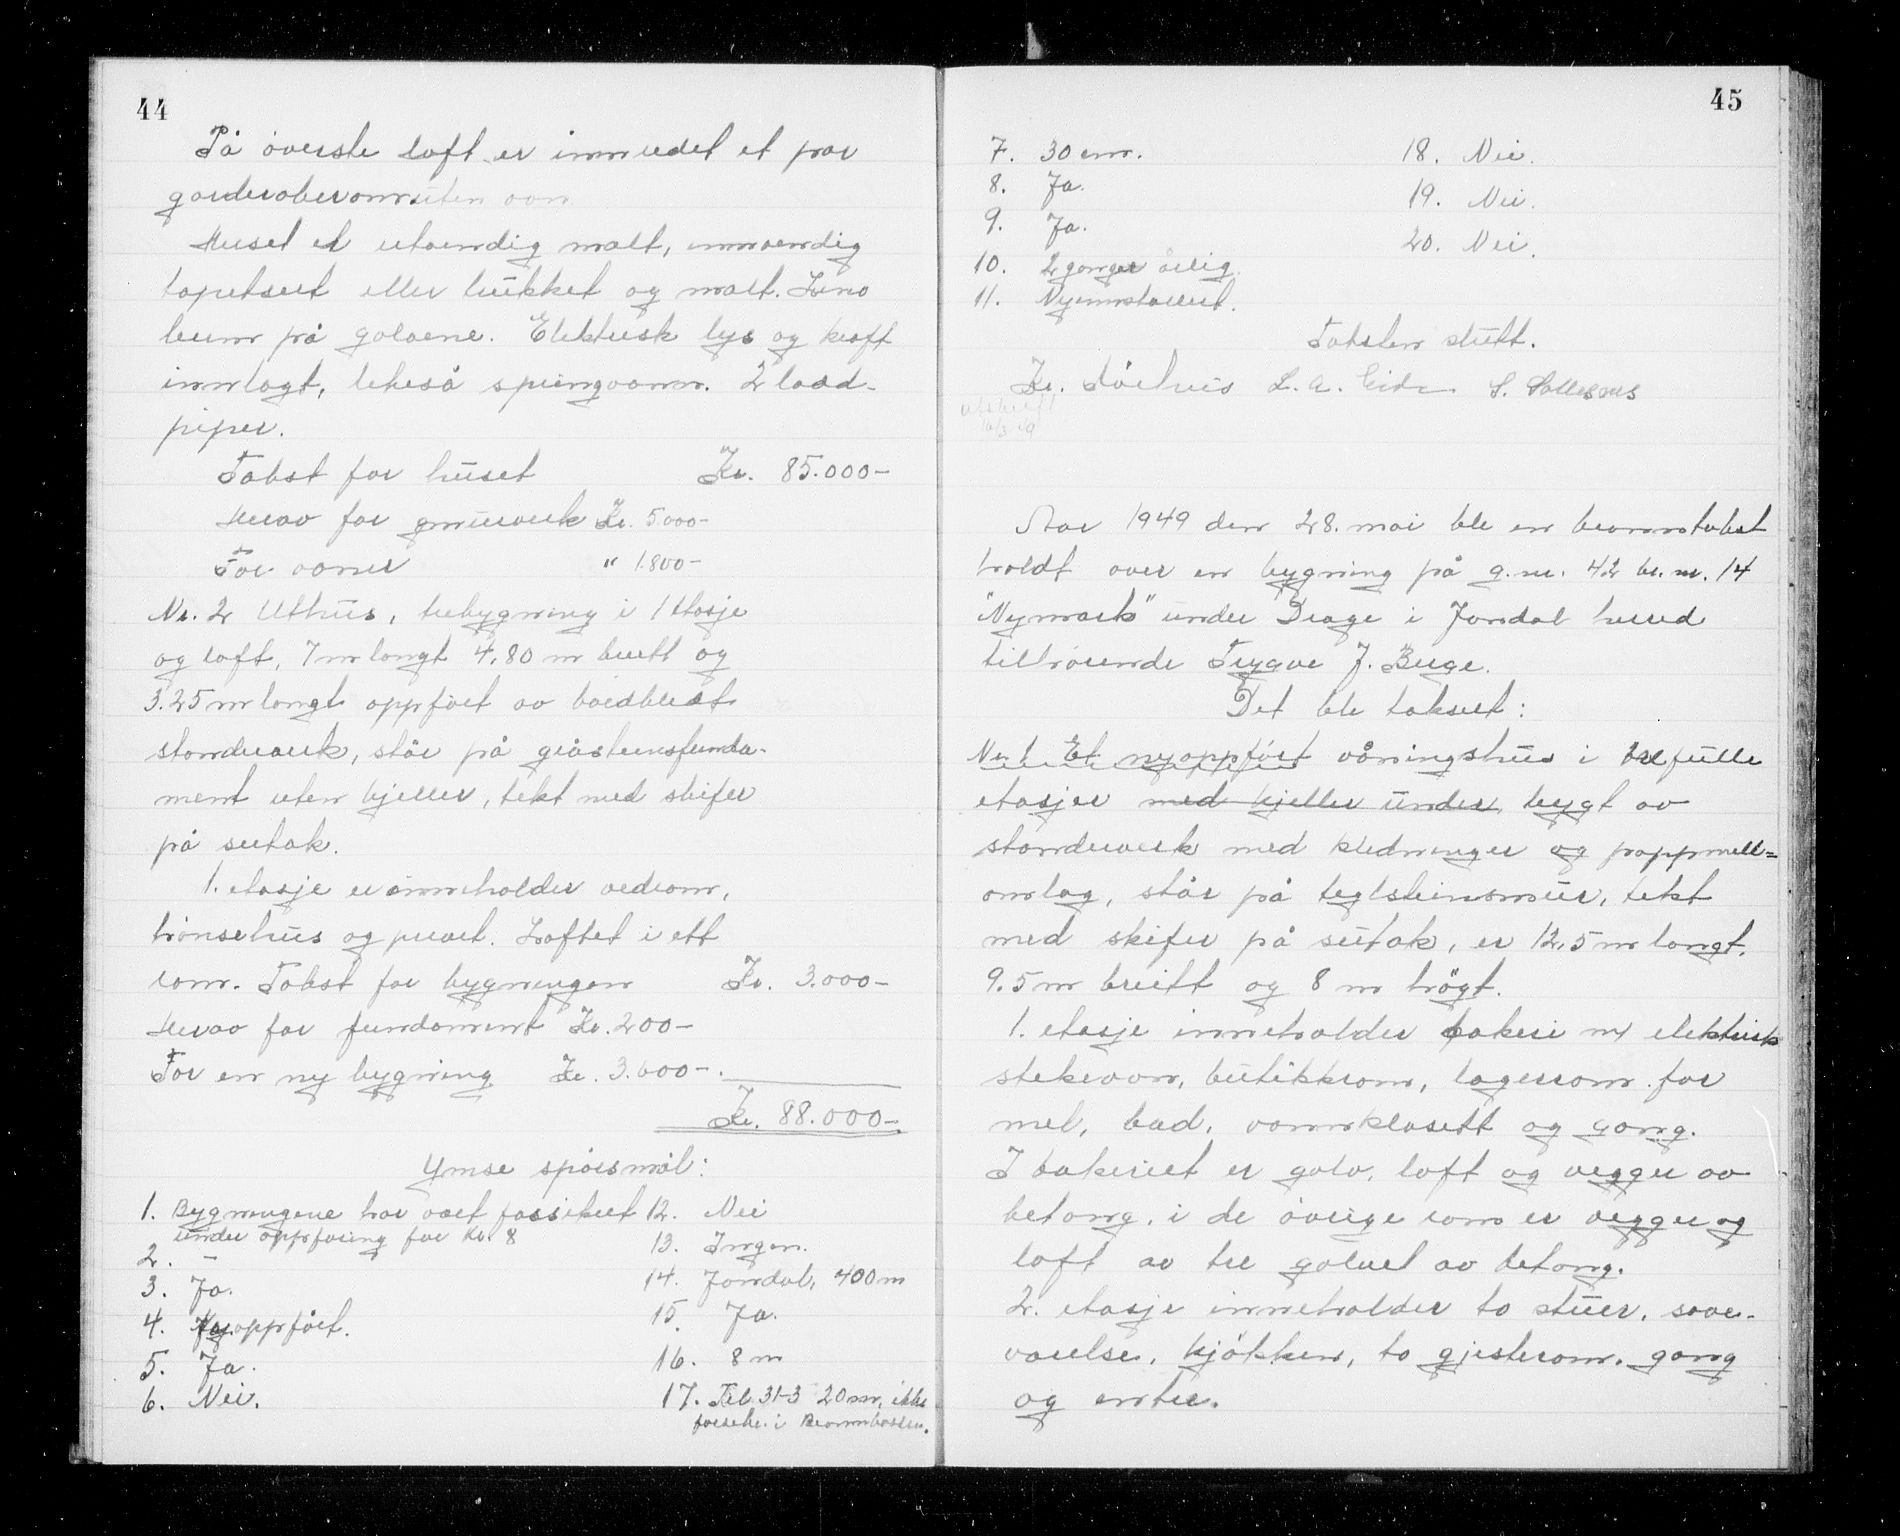 44
På øverste loft er innredet et par
garderoberom uten ovn
Huset er utvendig malt, innvendig
tapetsert eller trukket og malt. Lino
leum på golvene. Elektrisk lys og kraft
innlagt, likeså springvann. 2 ladd-
piper.
Takst for huset Kr. 85.000-
Herav for grunnverk Kr. 5000-
For ovner " 1.800-
Nr. 2 Uthus, trebygning i 1 etasje
og loft, 7 m langt 4,80 m breitt og
3.25 m langt oppført av bordkledt
standverk, står på gråsteinsfunda-
ment uten kjeller, tekt med skifer
på sutak.
1. etasje er inneholder vedrom,
hønsehus og privet. Loftet i ett
rom. Takst for bygningen Kr. 3.000-
Herav for fundament Kr. 200-
For en ny bygning Kr. 3.000-.
Kr. 88.000-
Ymse spørsmål:
1. Bygningene har vært forsikret
under oppføring for kr. 8
2. -
3. Ja.
4. Nyoppført.
5. Ja.
6. Nei.
12. Nei
13. Ingen.
14. Jondal, 400 m
15. Ja.
16. 8 m
17. Til 31-3 20 m, ikke
forsikr. i Brannkassen.
45
7. 30 cm.
8. Ja.
9. Ja.
10. 2 ganger årlig.
11. Nyinnstallert.
18. Nei.
19. Nei.
20. Nei.
Taksten slutt.
Kr. Sørhus L. A. Eide S. Sollesnes
utskrift
16/3 49
Aar 1949 den 28. mai ble en branntakst
holdt over en bygning på g.nr. 42 br. nr. 14
"Nymark" under Drage i Jondal herred
tilhørende Trygve J. Berge.
Det ble taksert:
Nr. 1 Et nyoppført våningshus i tre fulle
etasjer med kjeller under, bygt av
standverk med kledninger og pappmell=
omlag, står på teglsteinsmur, tekt
med skifer på sutak, er 12,5 m langt,
9.5 m breitt og 8 m høgt.
1. etasje inneholder bakeri m/ elektrisk
stekeovn, butikkrom, lagerrom for
mel, bad, vannklosett og gang.
I bakeriet er golv, loft og vegger av
betong, i de øvrige rom er vegger og
loft av tre golvet av betong.
2. etasje inneholder to stuer, sove-
værelse, kjøkken, to gjesterom, gang
og entre.